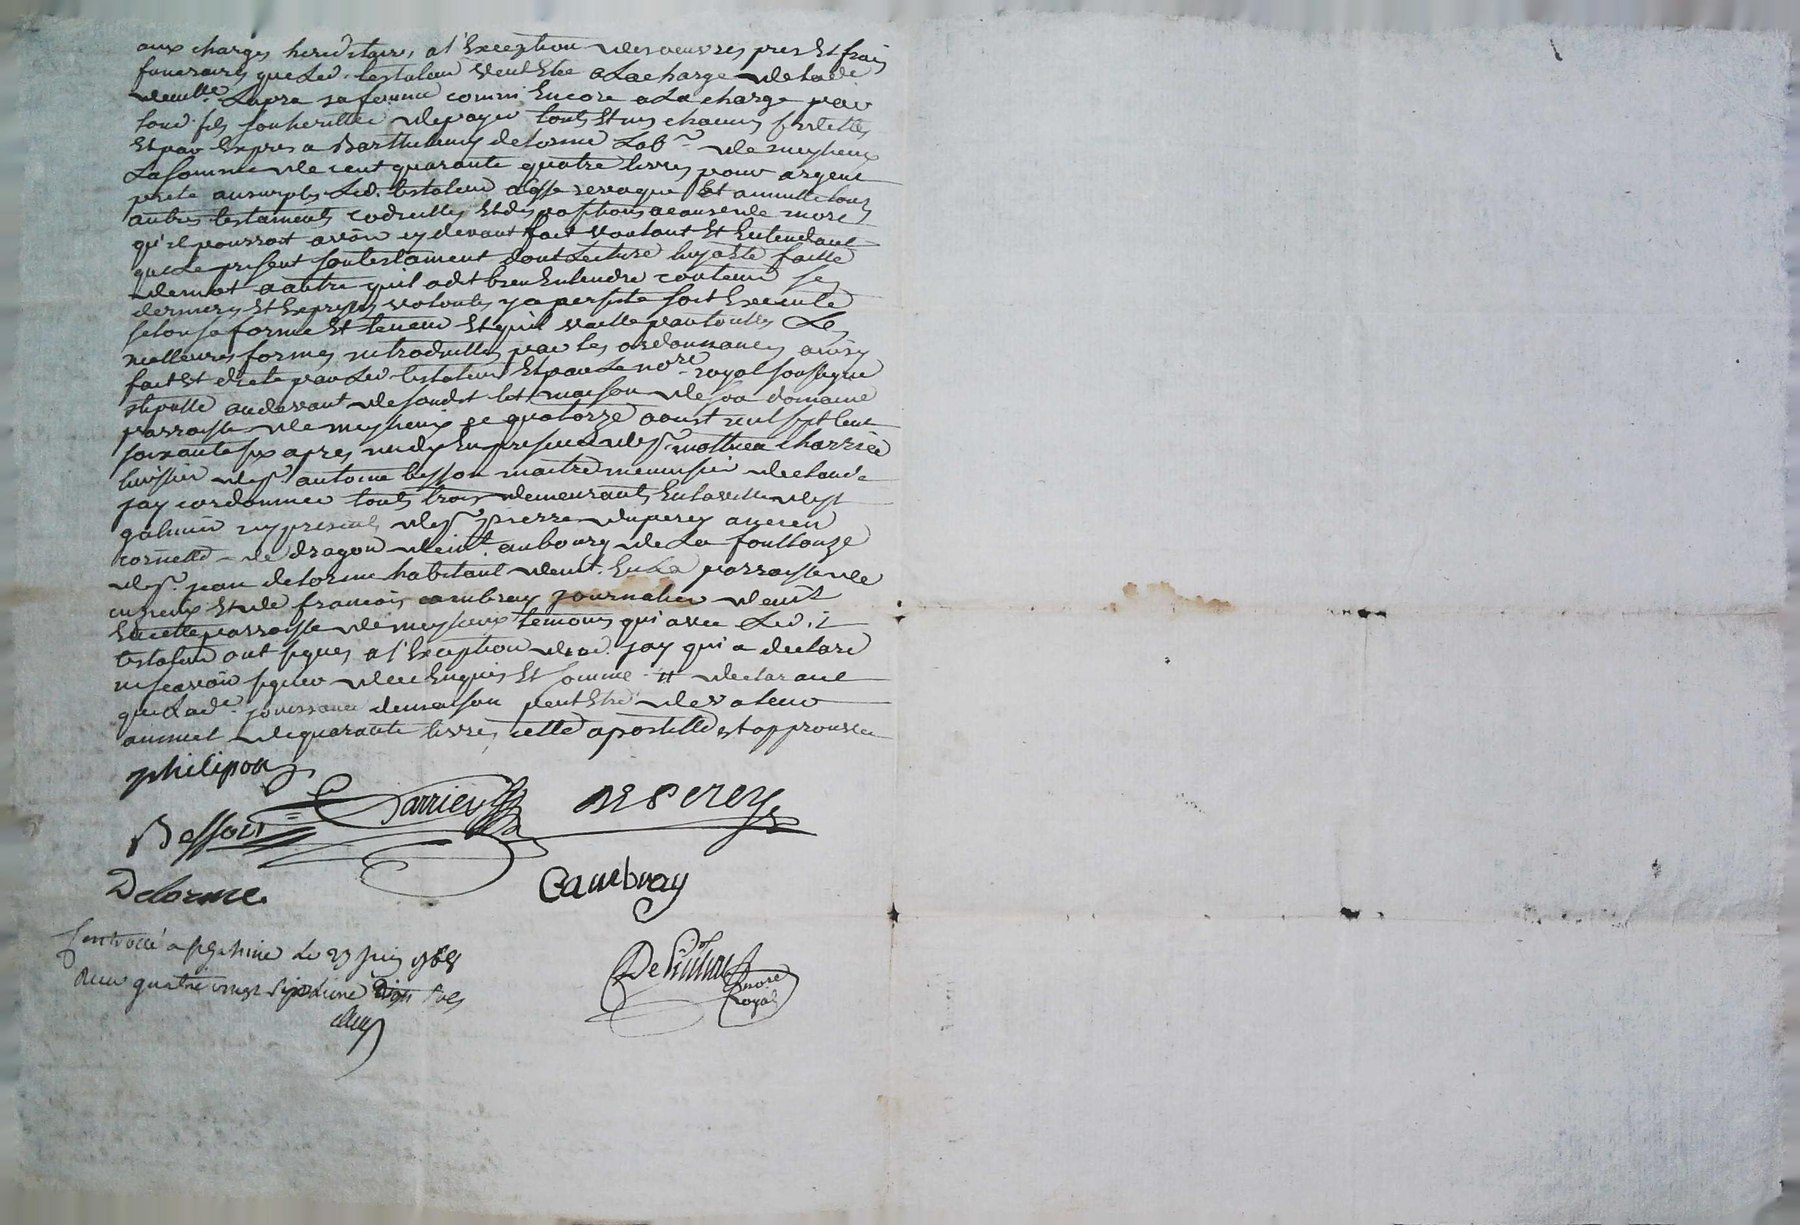 aux charges hereditaires a l'Exception des oeuvres pies Et frais
funeraires que Led. testateur veut Etre a La charge de lade
Lapra sa femme comm Encore a La charge par
soud. fils son heritier de payer touts Et uns chacuns
Et par Expres a Barthelemy delorme Lab.r de meyheux
La somme de cent quarante quatre livres pour argent
prete au surplus Led. testateur a casse revoque Et annulle touts
autres testaments codicilles Et dispositions a cause de mort
qu'il pourroit avoir cy devant fait voulant Et Entendant
que Le present son testament dont Lecture luy a Ete faitte
de mot a autre qu'il a dit bien Entendre contenir ses
dernieres Et Expresses volontes y a persiste soit Execute
selon sa forme Et teneur Et qu'il vaille par touttes Les
meilleures formes introduittes par les ordonnances ainsy
fait Et dicte par Led. testateur Et par Le no.re royal soussigne
stipulle au devant de soud.t let maison de son domaine
parroisse de meysieux ce quatorze aoust mil sept cent
soixante six apres midy En presence de s.r mathieu charrier
huissier de s.r antoine besson maitre menuisier de claude
jay cordonnier touts trois demeurants En la ville de st
galmier cy presents de s.r pierre duperey ancien
cornette de dragon dem.t au bourg de La foullouze
de s.r jean delorme habitant dem.t En La parroisse de
cuzieux Et de francois cambray journalier dem.t
En cette parroisse de meysieux temoins qui avec Ledit
testateur ont signes a l'Exception dud. jay qui a declare
ne scavoir signer de ce Enquis Et somme # declarant
que Lad.e jouissance de maison peut Etre de valeur
annuel de quarante livres cette apostille Et approuvée
philipon
Besson Charrier DUPEREY
Delorme. Cambray
Controllé a st galmier Le 23 juin 1768
Recu quatre vingt six livre sols
no.re
Royal